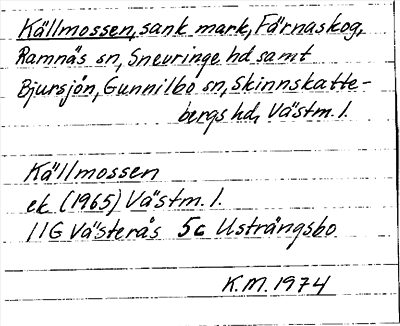 Källmossen, sank mark, Färnaskog,
Ramnäs sn, Snevringe hd samt
Bjursjön, Gunnilbo sn, Skinnskatte-
bergs hd, Västm. l.
Källmossen
ek (1965) Västm. l.
11G Västerås 5c Usträngsbo
K.M. 1974